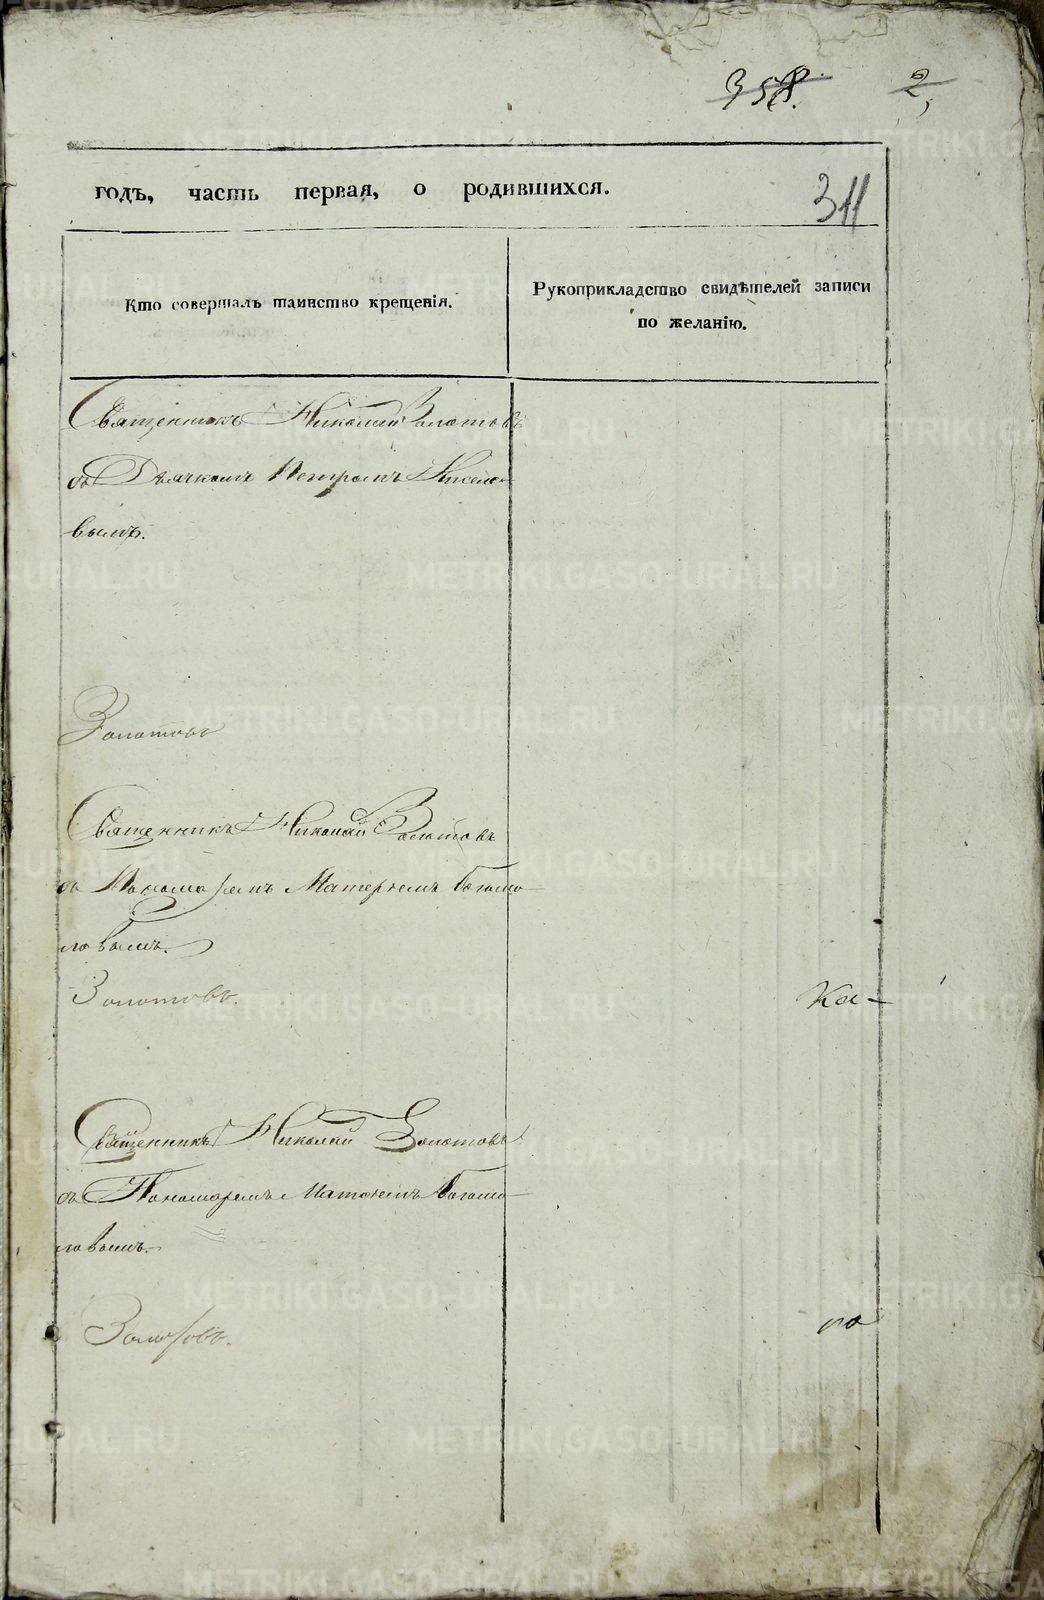 358. 2,
годъ, часть первая, о родившихся.
311
Кто совершалъ таинство крещенія.
Рукоприкладство свидѣтелей записи
по желанію.
Священникъ Николай Золотовъ
съ Дьячкомъ Петромъ Кисело-
вымъ.
Золотовъ
Священникъ Николай Золотовъ
съ Пономаремъ Матѳеемъ Богомо-
ловымъ.
Золотовъ.
Ка-
Священникъ Николай Золотовъ
съ Пономаремъ Матѳеемъ Богомо-
ловымъ.
Золотовъ.
по
METRIKI.GASO-URAL.RU